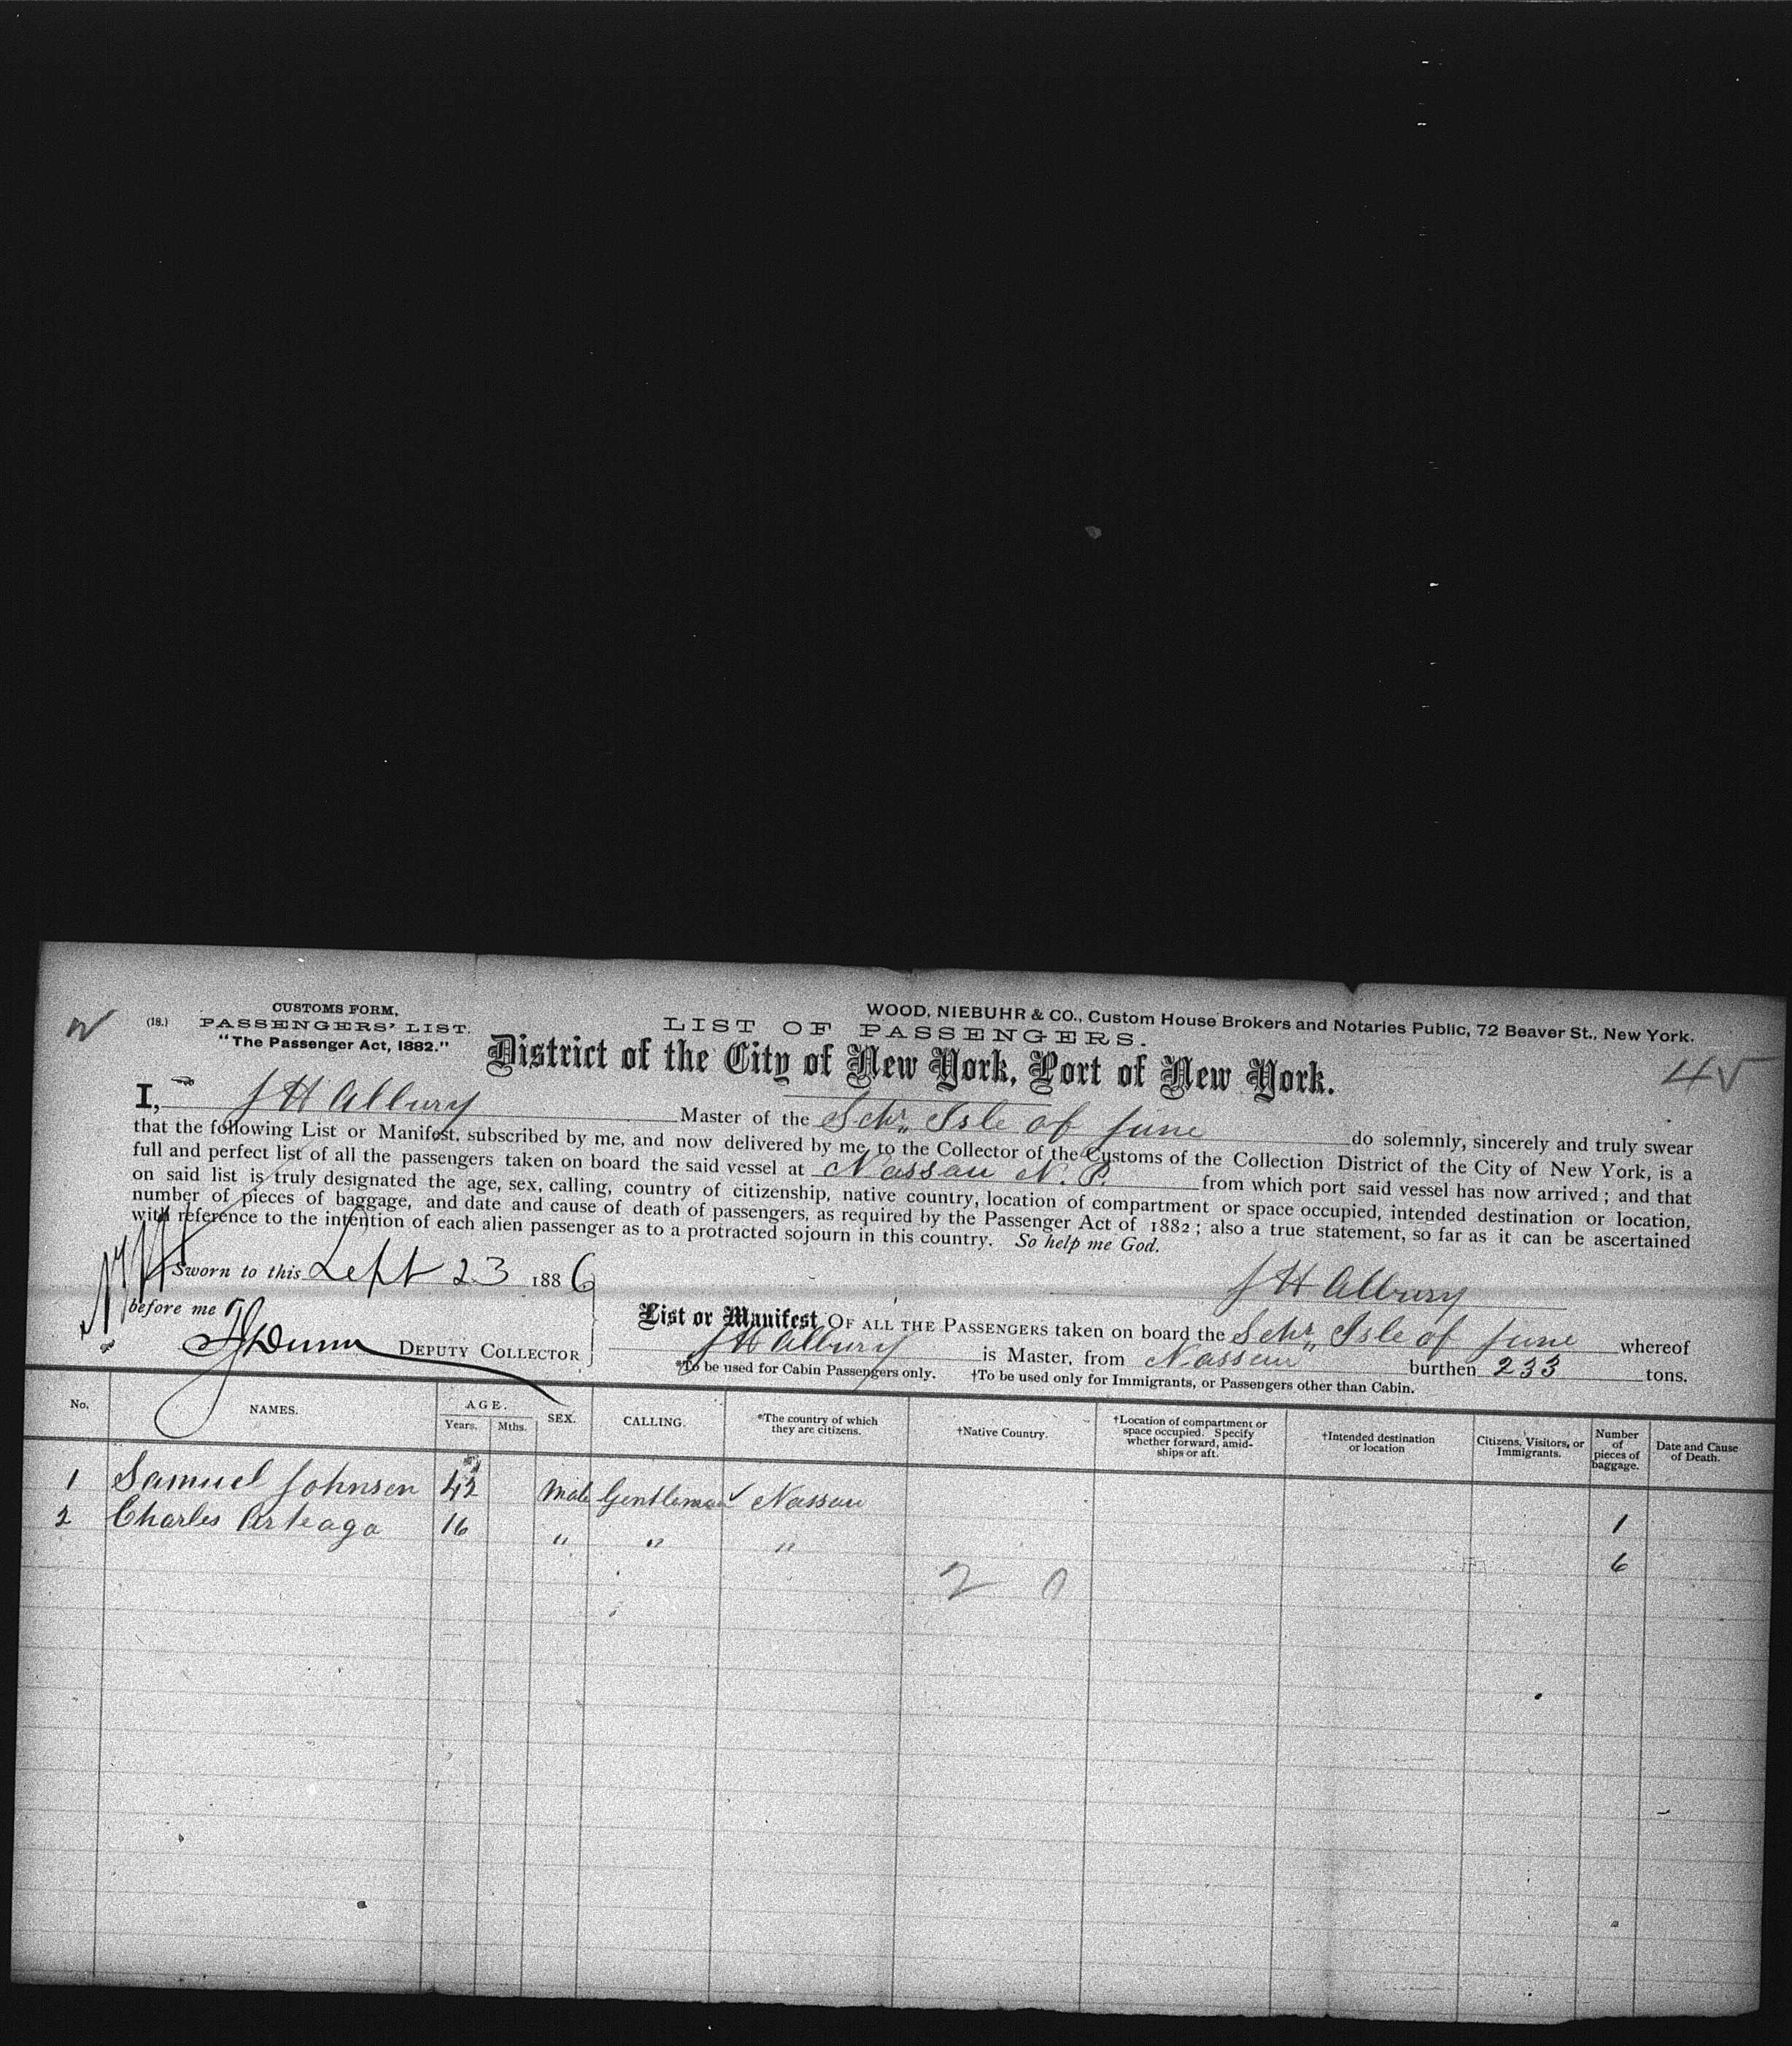 CUSTOMS FORM,
(18.) PASSENGERS' LIST.
"The Passenger Act, 1882."
WOOD, NIEBUHR & CO., Custom House Brokers and Notaries Public, 72 Beaver St., New York.
LIST OF PASSENGERS.
District of the City of New York, Port of New York.
I, J H Albury Master of the Schr Isle of June do solemnly, sincerely and truly swear
that the following List or Manifest, subscribed by me, and now delivered by me to the Collector of the Customs of the Collection District of the City of New York, is a
full and perfect list of all the passengers taken on board the said vessel at Nassau N. P. from which port said vessel has now arrived; and that
on said list is truly designated the age, sex, calling, country of citizenship, native country, location of compartment or space occupied, intended destination or location,
number of pieces of baggage, and date and cause of death of passengers, as required by the Passenger Act of 1882; also a true statement, so far as it can be ascertained
with reference to the intention of each alien passenger as to a protracted sojourn in this country. So help me God.
Sworn to this Sept 23 1886
J H Albury
before me
Dunn DEPUTY COLLECTOR
List or Manifest OF ALL THE PASSENGERS taken on board the Schr Isle of June whereof
J H Albury is Master, from Nassau burthen 233 tons.
*To be used for Cabin Passengers only. †To be used only for Immigrants, or Passengers other than Cabin.
No. NAMES. AGE. Years. Mths. SEX. CALLING. *The country of which they are citizens. †Native Country. †Location of compartment or space occupied. Specify whether forward, amidships or aft. †Intended destination or location Citizens, Visitors, or Immigrants. Number of pieces of baggage. Date and Cause of Death.
1 Samuel Johnson 42 Male Gentleman Nassau 1
2 Charles Arteaga 16 " " " 6
2 0